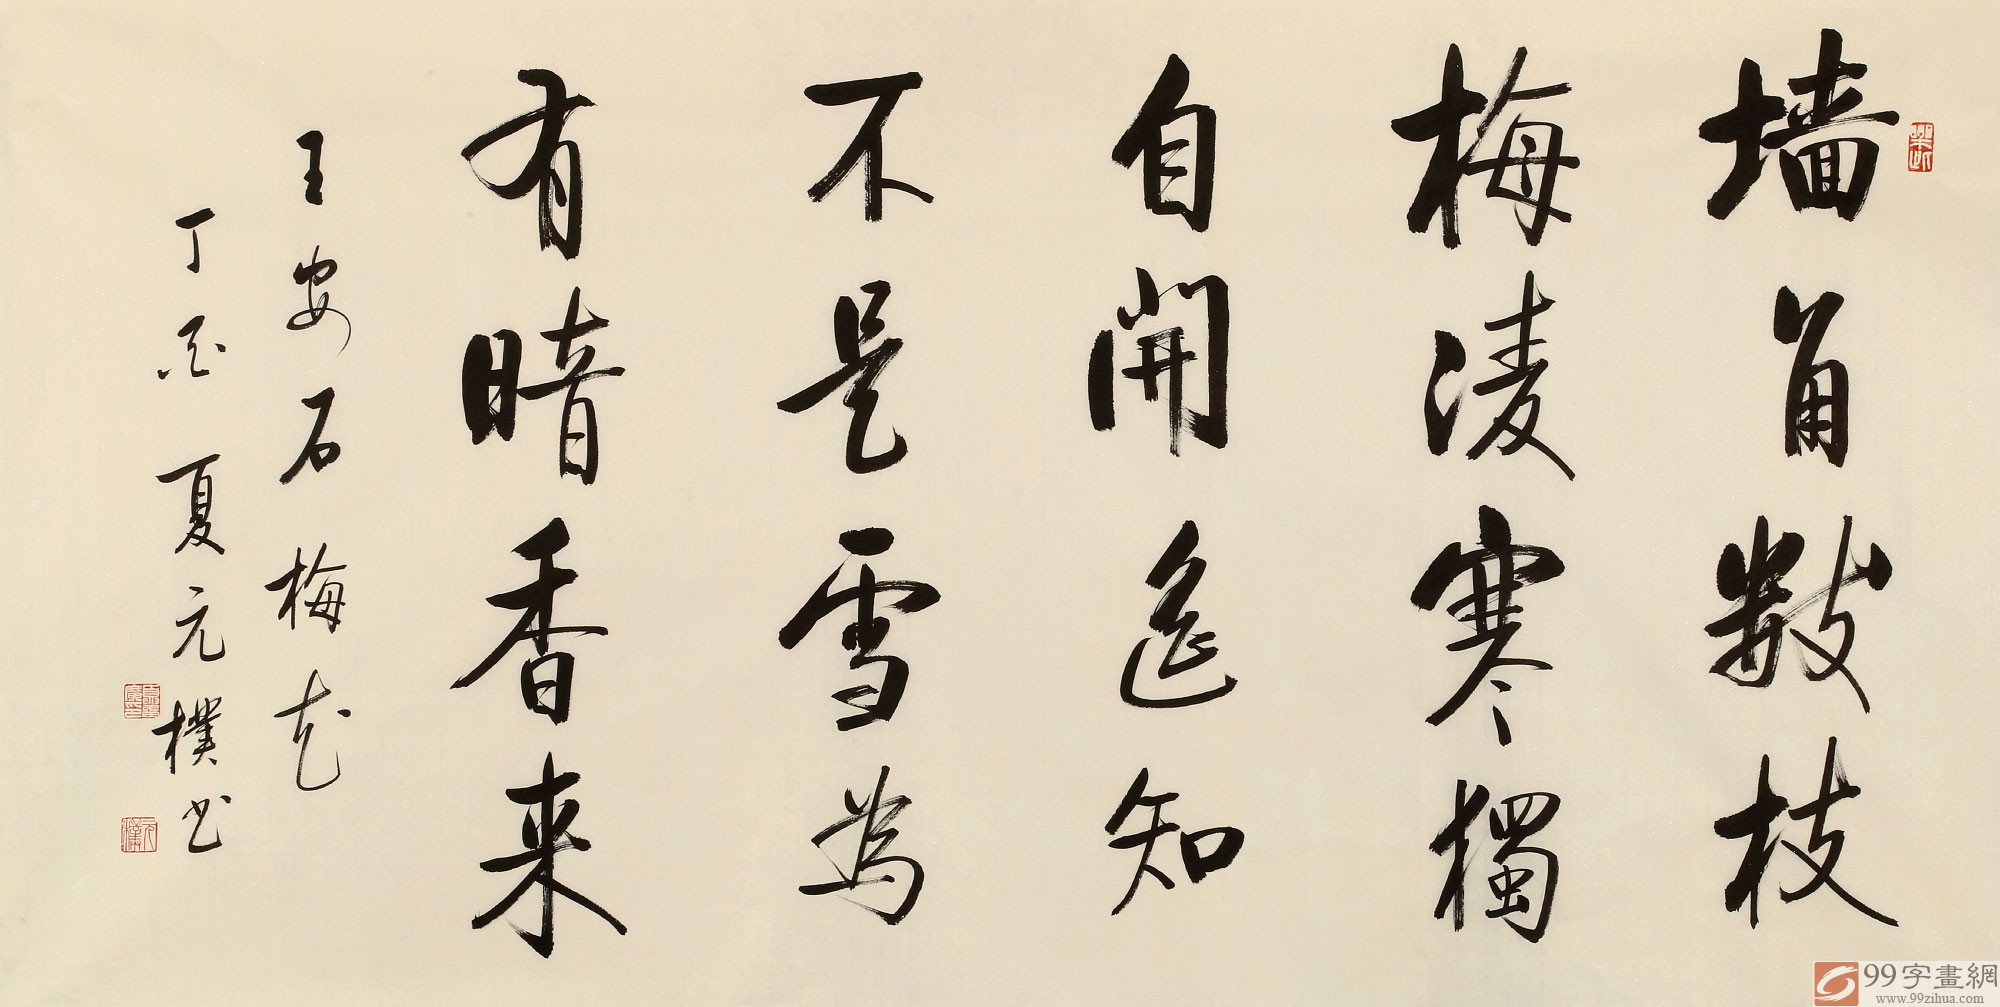 墙角数枝
梅凌寒獨
自開遥知
不是雪為
有暗香来
王安石梅花
丁酉 夏元樸书
99字畫網
www.99zihua.com